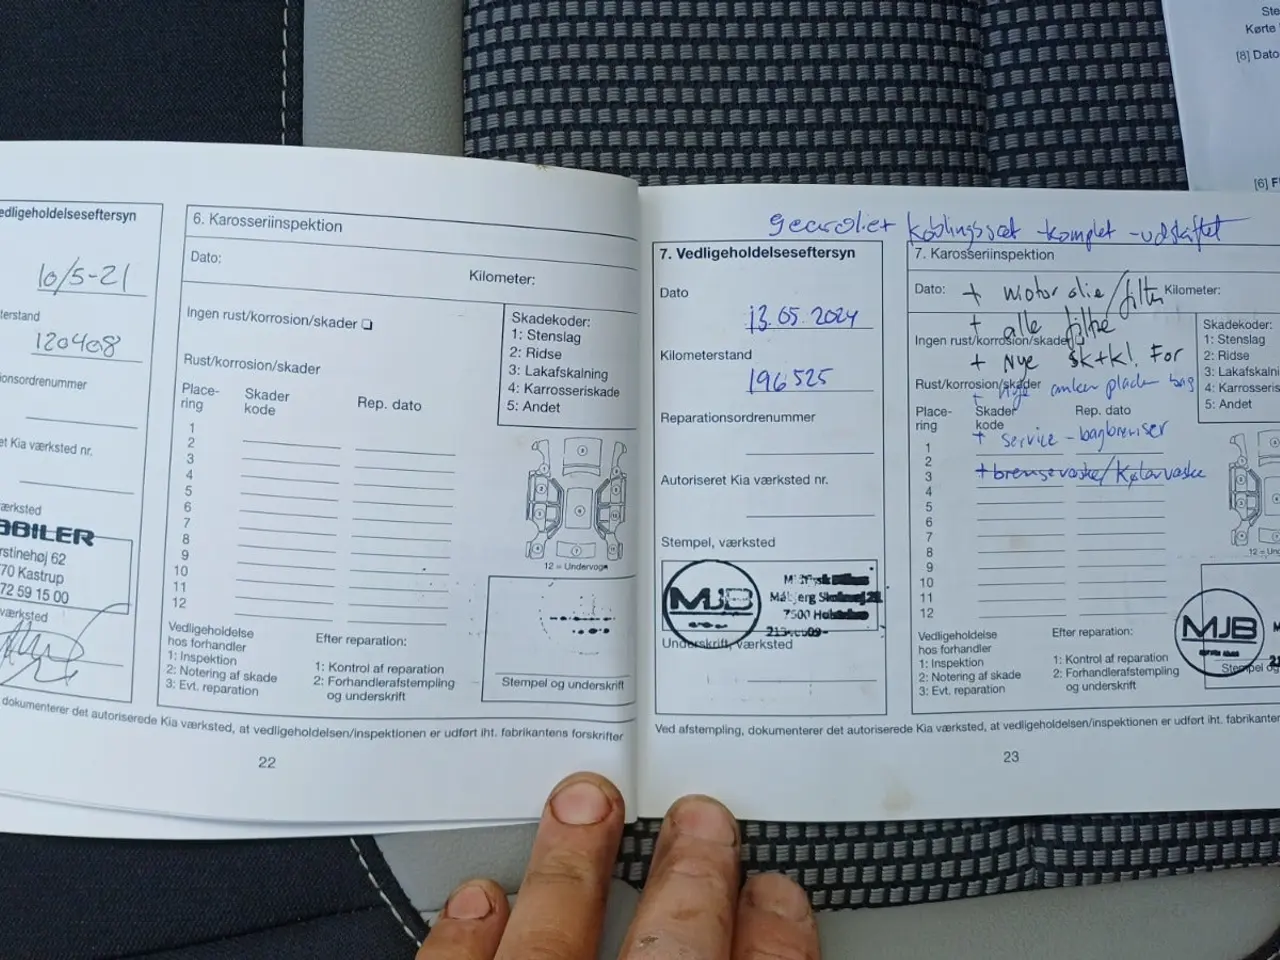 Ste
Kørte
[8] Dato
[6] F
edligeholdelseseftersyn
10/5-21
terstand
120408
ionsordrenummer
et Kia værksted nr.
ærksted
BILER
rstinehøj 62
70 Kastrup
72 59 15 00
værksted
dokumenterer det autoriserede Kia værksted, at vedligeholdelsen/inspektionen er udført iht. fabrikantens forskrifter
6. Karosseriinspektion
Dato:
Kilometer:
Ingen rust/korrosion/skader
Rust/korrosion/skader
Skadekoder:
1: Stenslag
2: Ridse
3: Lakafskalning
4: Karrosseriskade
5: Andet
Place-
ring
Skader
kode
Rep. dato
1
2
3
4
5
6
7
8
9
10
11
12
12 = Undervogn
Vedligeholdelse
hos forhandler
1: Inspektion
2: Notering af skade
3: Evt. reparation
Efter reparation:
1: Kontrol af reparation
2: Forhandlerafstempling
og underskrift
Stempel og underskrift
22
gearolie + koblingssæt -komplet -udskiftet
7. Vedligeholdelseseftersyn
Dato
13.05.2024
Kilometerstand
196525
Reparationsordrenummer
Autoriseret Kia værksted nr.
Stempel, værksted
MJB
7500 Holstebro
Underskrift, værksted
Ved afstempling, dokumenterer det autoriserede Kia værksted, at vedligeholdelsen/inspektionen er udført iht. fabrikanten
7. Karosseriinspektion
Dato:
+ motor olie/filter
Kilometer:
+ alle filtre
Ingen rust/korrosion/skader
+ Nye sk+kl. For
Rust/korrosion/skader
+ Nye anker plader bag
Skadekoder:
1: Stenslag
2: Ridse
3: Lakafskalni
4: Karrosseris
5: Andet
Place-
ring
Skader
kode
Rep. dato
+ service - bagbremser
+ bremsevæske/Kølervæske
1
2
3
4
5
6
7
8
9
10
11
12
12 = U
Vedligeholdelse
hos forhandler
1: Inspektion
2: Notering af skade
3: Evt. reparation
Efter reparation:
1: Kontrol af reparation
2: Forhandlerafstempling
og underskrift
MJB
Stempel og
23